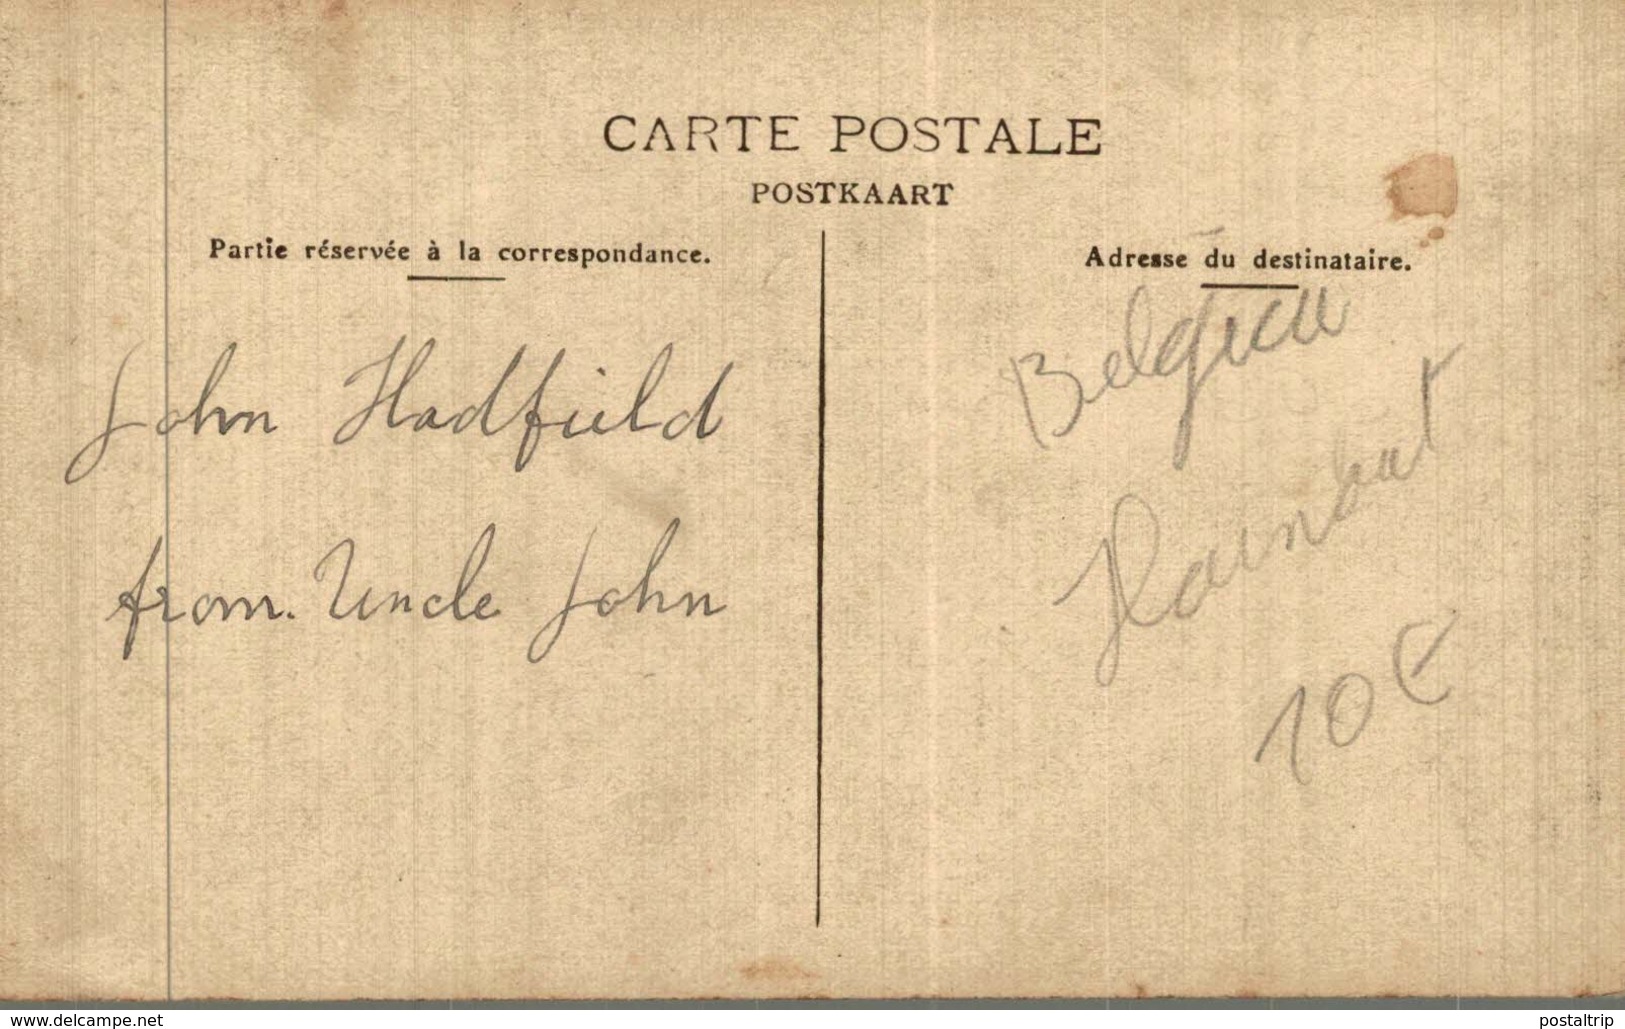 CARTE POSTALE
POSTKAART
Partie réservée à la correspondance.
Adresse du destinataire.
John Hadfield
from. Uncle John
10 €
www.delcampe.net
postaltrip